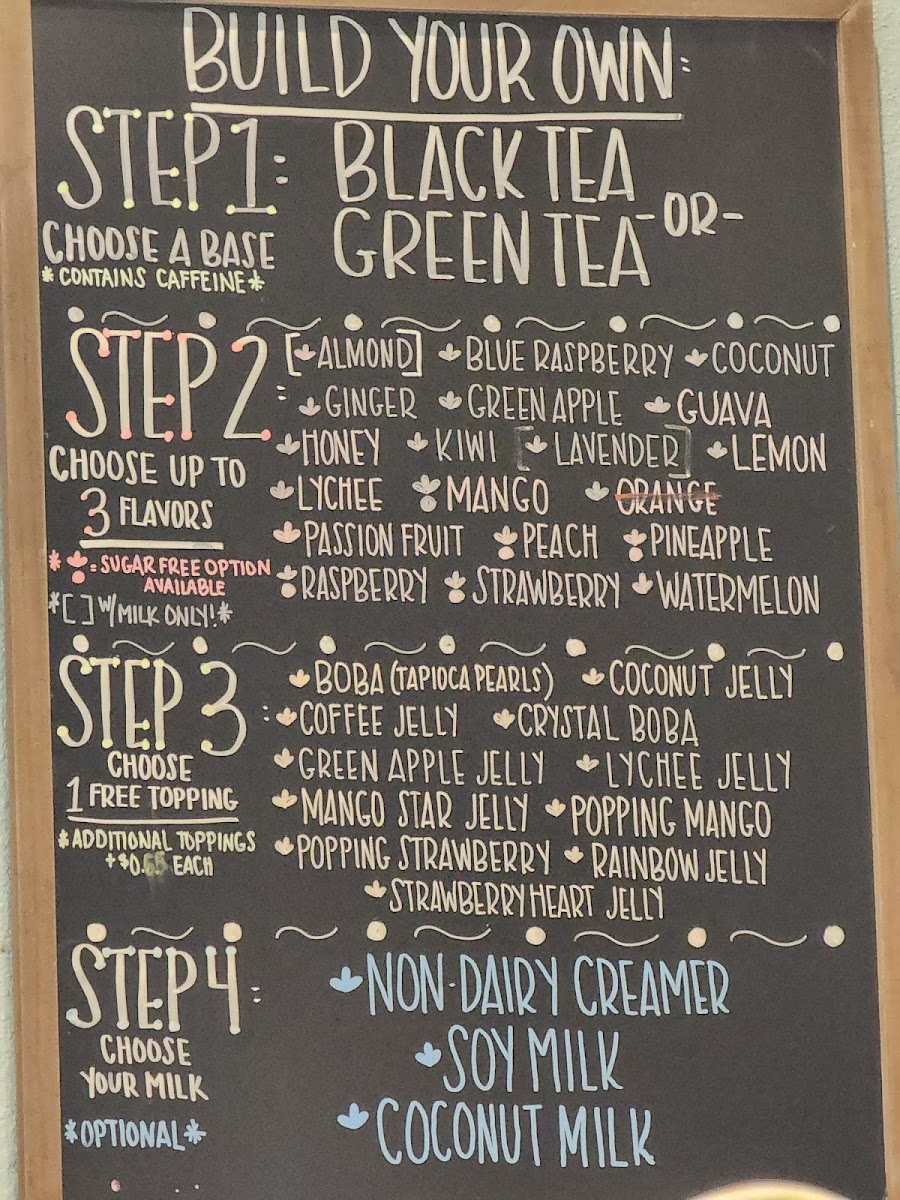 BUILD YOUR OWN:
STEP 1:
CHOOSE A BASE
*CONTAINS CAFFEINE*
BLACK TEA
-OR-
GREEN TEA
STEP 2:
CHOOSE UP TO
3 FLAVORS
* = SUGAR FREE OPTION
AVAILABLE
*[ ] W/MILK ONLY!*
[ALMOND] BLUE RASPBERRY COCONUT
GINGER GREEN APPLE GUAVA
HONEY KIWI [LAVENDER] LEMON
LYCHEE MANGO ORANGE
PASSION FRUIT PEACH PINEAPPLE
RASPBERRY STRAWBERRY WATERMELON
STEP 3:
CHOOSE
1 FREE TOPPING
*ADDITIONAL TOPPINGS
+$0.65 EACH
BOBA (TAPIOCA PEARLS) COCONUT JELLY
COFFEE JELLY CRYSTAL BOBA
GREEN APPLE JELLY LYCHEE JELLY
MANGO STAR JELLY POPPING MANGO
POPPING STRAWBERRY RAINBOW JELLY
STRAWBERRY HEART JELLY
STEP 4:
CHOOSE
YOUR MILK
*OPTIONAL*
NON-DAIRY CREAMER
SOY MILK
COCONUT MILK